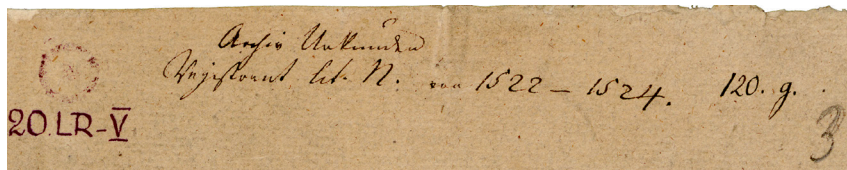 Archiv Urkunden
Registrant lit. N. von 1522 – 1524. 120. g.
20.LR-V
3